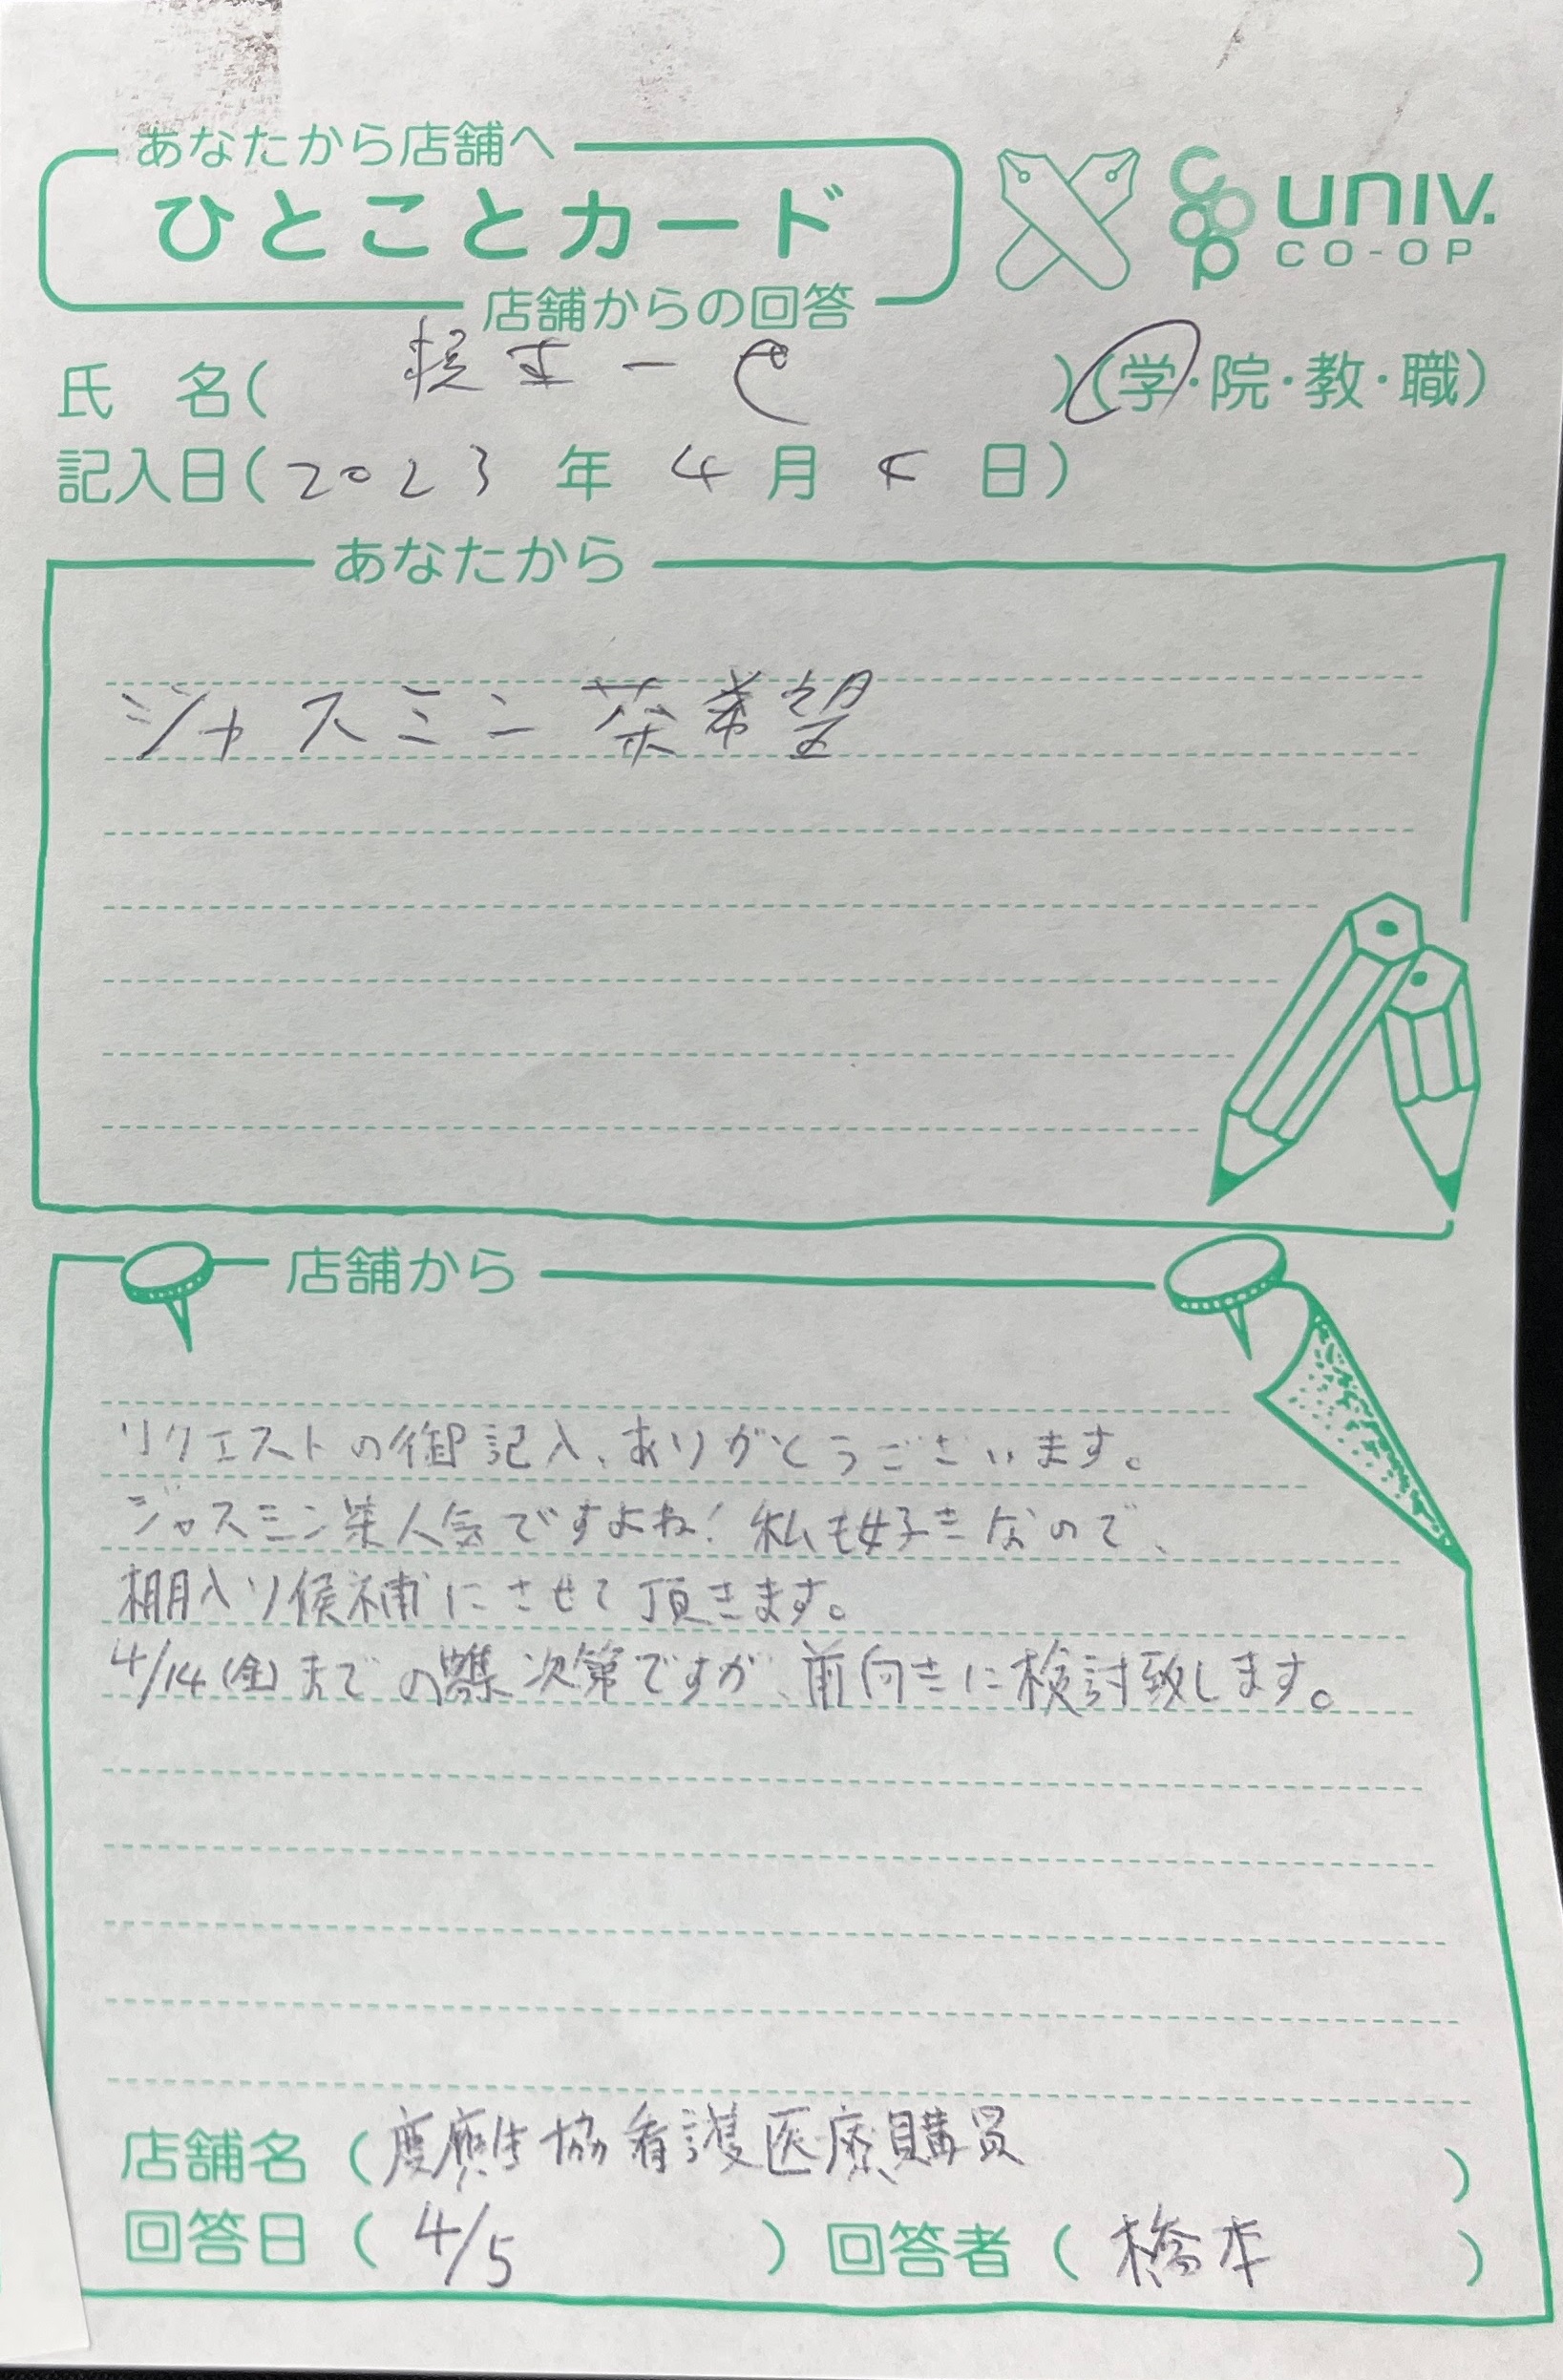 あなたから店舗へ
ひとことカード
店舗からの回答
univ.
CO-OP
氏 名( )(学・院・教・職)
記入日(2023年4月5日)
あなたから
ジャスミン茶希望
店舗から
リクエストの御記入、ありがとうございます。
ジャスミン茶人気ですよね!私も好きなので、
棚入り候補にさせて頂きます。
4/14(金)までの募集次第ですが、前向きに検討致します。
店舗名(慶應生協看護医療購買)
回答日(4/5)回答者(橋本)